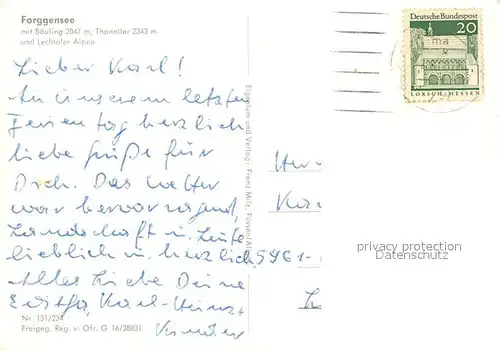 Forggensee
mit Säuling 2047 m, Thaneller 2343 m
und Lechtaler Alpen
Lieber Karl!
An unserem letzten
Ferientag herzlich
liebe Grüße für
Dich. Das Wetter
war hervorragend,
Landschaft u. Leute
lieblich u. herzlich.
Alles Liebe Deine
Karl-Heinz
Kinder
Nr. 131/234
Freigeg. Reg. v. Ofr. G 16/38831
Eigentum und Verlag: Franz Milz, Füssen/Allg
Deutsche Bundespost
20
LORSCH/HESSEN
Her
Ka
5961-
privacy protection
Datenschutz